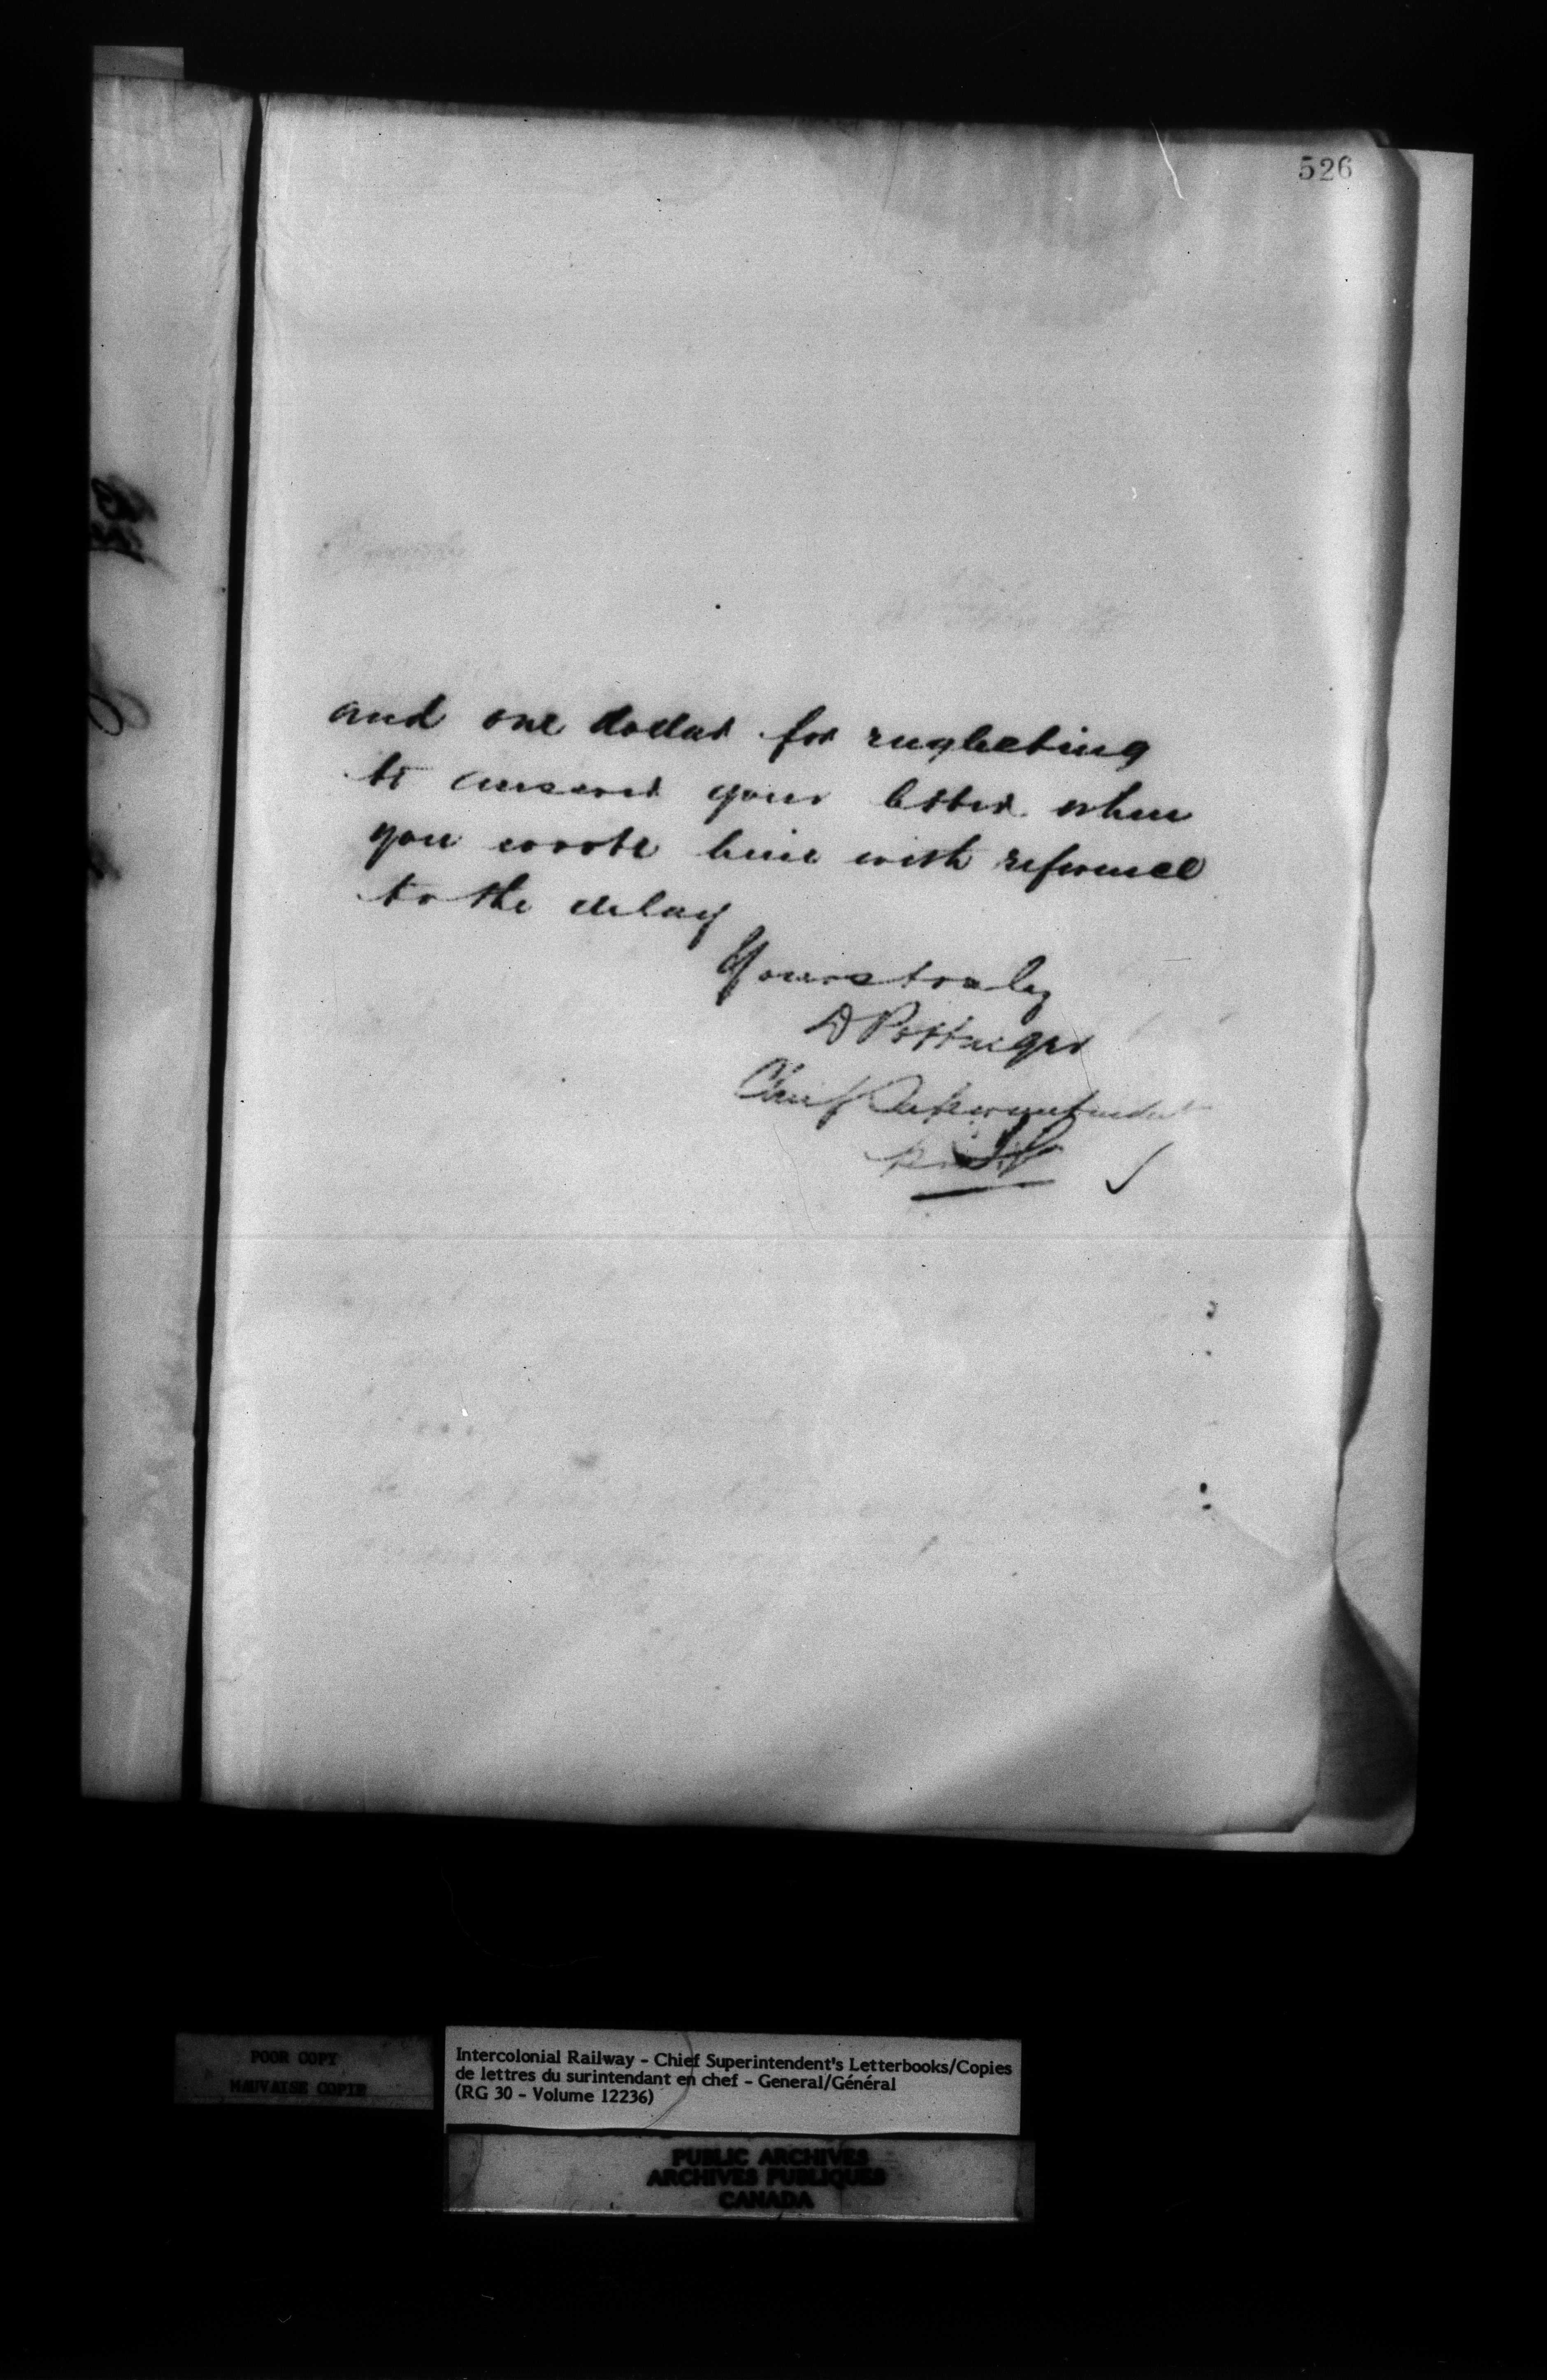 526
and one dollar for neglecting
to answer your letter when
you wrote him with reference
to the delay
Yours truly
D Pottinger
Chief Superintendent
POOR COPY
MAUVAISE COPIE
Intercolonial Railway - Chief Superintendent's Letterbooks/Copies
de lettres du surintendant en chef - General/Général
(RG 30 - Volume 12236)
PUBLIC ARCHIVES
ARCHIVES PUBLIQUES
CANADA